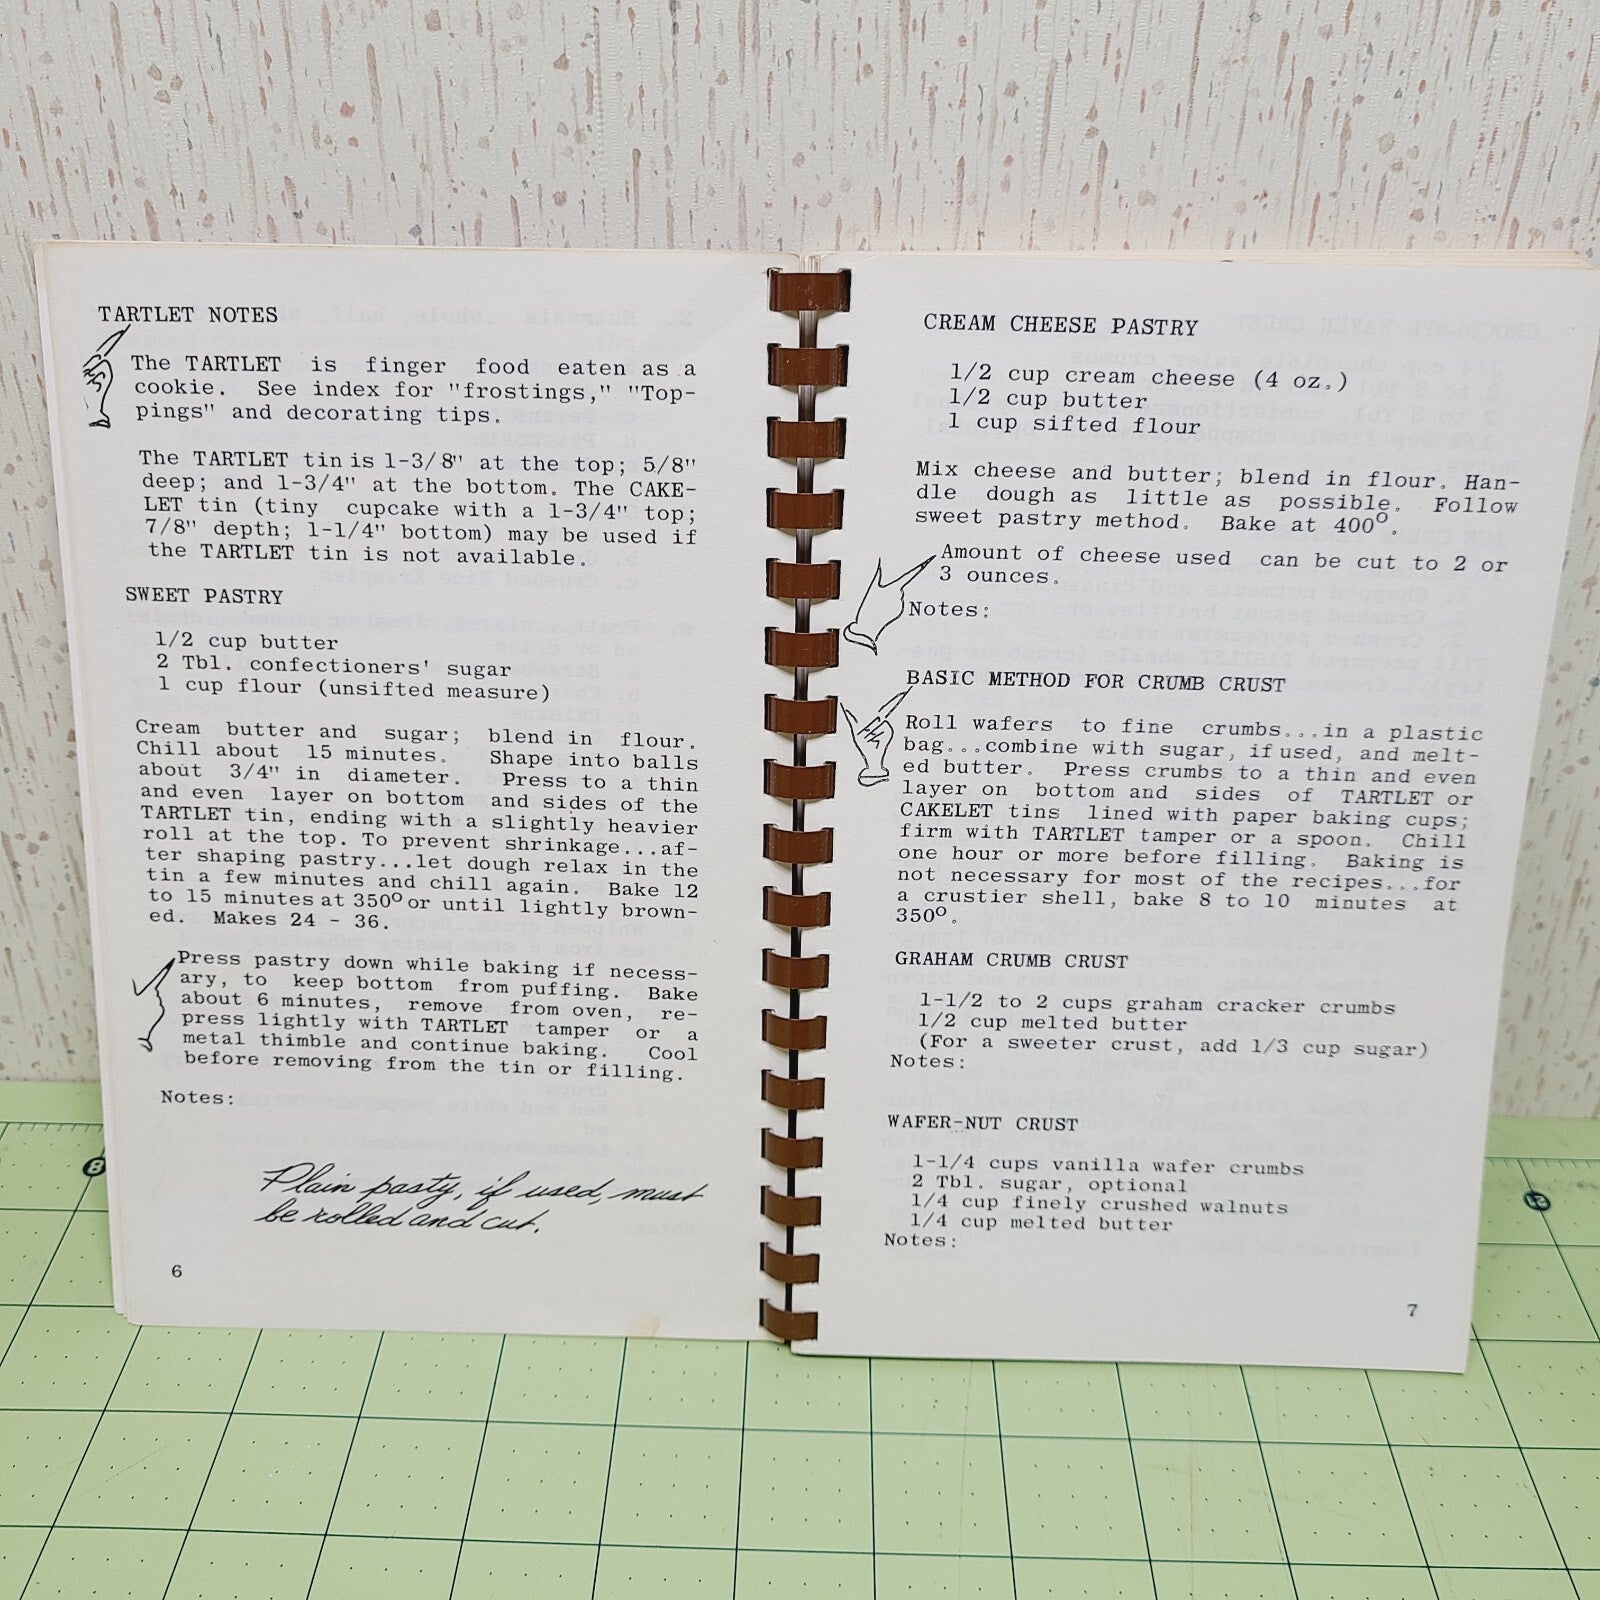 TARTLET NOTES
The TARTLET is finger food eaten as a
cookie. See index for "frostings," "Top-
pings" and decorating tips.
The TARTLET tin is 1-3/8" at the top; 5/8"
deep; and 1-3/4" at the bottom. The CAKE-
LET tin (tiny cupcake with a 1-3/4" top;
7/8" depth; 1-1/4" bottom) may be used if
the TARTLET tin is not available.
SWEET PASTRY
1/2 cup butter
2 Tbl. confectioners' sugar
1 cup flour (unsifted measure)
Cream butter and sugar; blend in flour.
Chill about 15 minutes. Shape into balls
about 3/4" in diameter. Press to a thin
and even layer on bottom and sides of the
TARTLET tin, ending with a slightly heavier
roll at the top. To prevent shrinkage...af-
ter shaping pastry...let dough relax in the
tin a few minutes and chill again. Bake 12
to 15 minutes at 350° or until lightly brown-
ed. Makes 24 - 36.
Press pastry down while baking if necess-
ary, to keep bottom from puffing. Bake
about 6 minutes, remove from oven, re-
press lightly with TARTLET tamper or a
metal thimble and continue baking. Cool
before removing from the tin or filling.
Notes:
Plain pasty, if used, must
be rolled and cut.
6
CREAM CHEESE PASTRY
1/2 cup cream cheese (4 oz.)
1/2 cup butter
1 cup sifted flour
Mix cheese and butter; blend in flour. Han-
dle dough as little as possible. Follow
sweet pastry method. Bake at 400°.
Amount of cheese used can be cut to 2 or
3 ounces.
Notes:
BASIC METHOD FOR CRUMB CRUST
Roll wafers to fine crumbs...in a plastic
bag...combine with sugar, if used, and melt-
ed butter. Press crumbs to a thin and even
layer on bottom and sides of TARTLET or
CAKELET tins lined with paper baking cups;
firm with TARTLET tamper or a spoon. Chill
one hour or more before filling. Baking is
not necessary for most of the recipes...for
a crustier shell, bake 8 to 10 minutes at
350°.
GRAHAM CRUMB CRUST
1-1/2 to 2 cups graham cracker crumbs
1/2 cup melted butter
(For a sweeter crust, add 1/3 cup sugar)
Notes:
WAFER-NUT CRUST
1-1/4 cups vanilla wafer crumbs
2 Tbl. sugar, optional
1/4 cup finely crushed walnuts
1/4 cup melted butter
Notes:
7
8